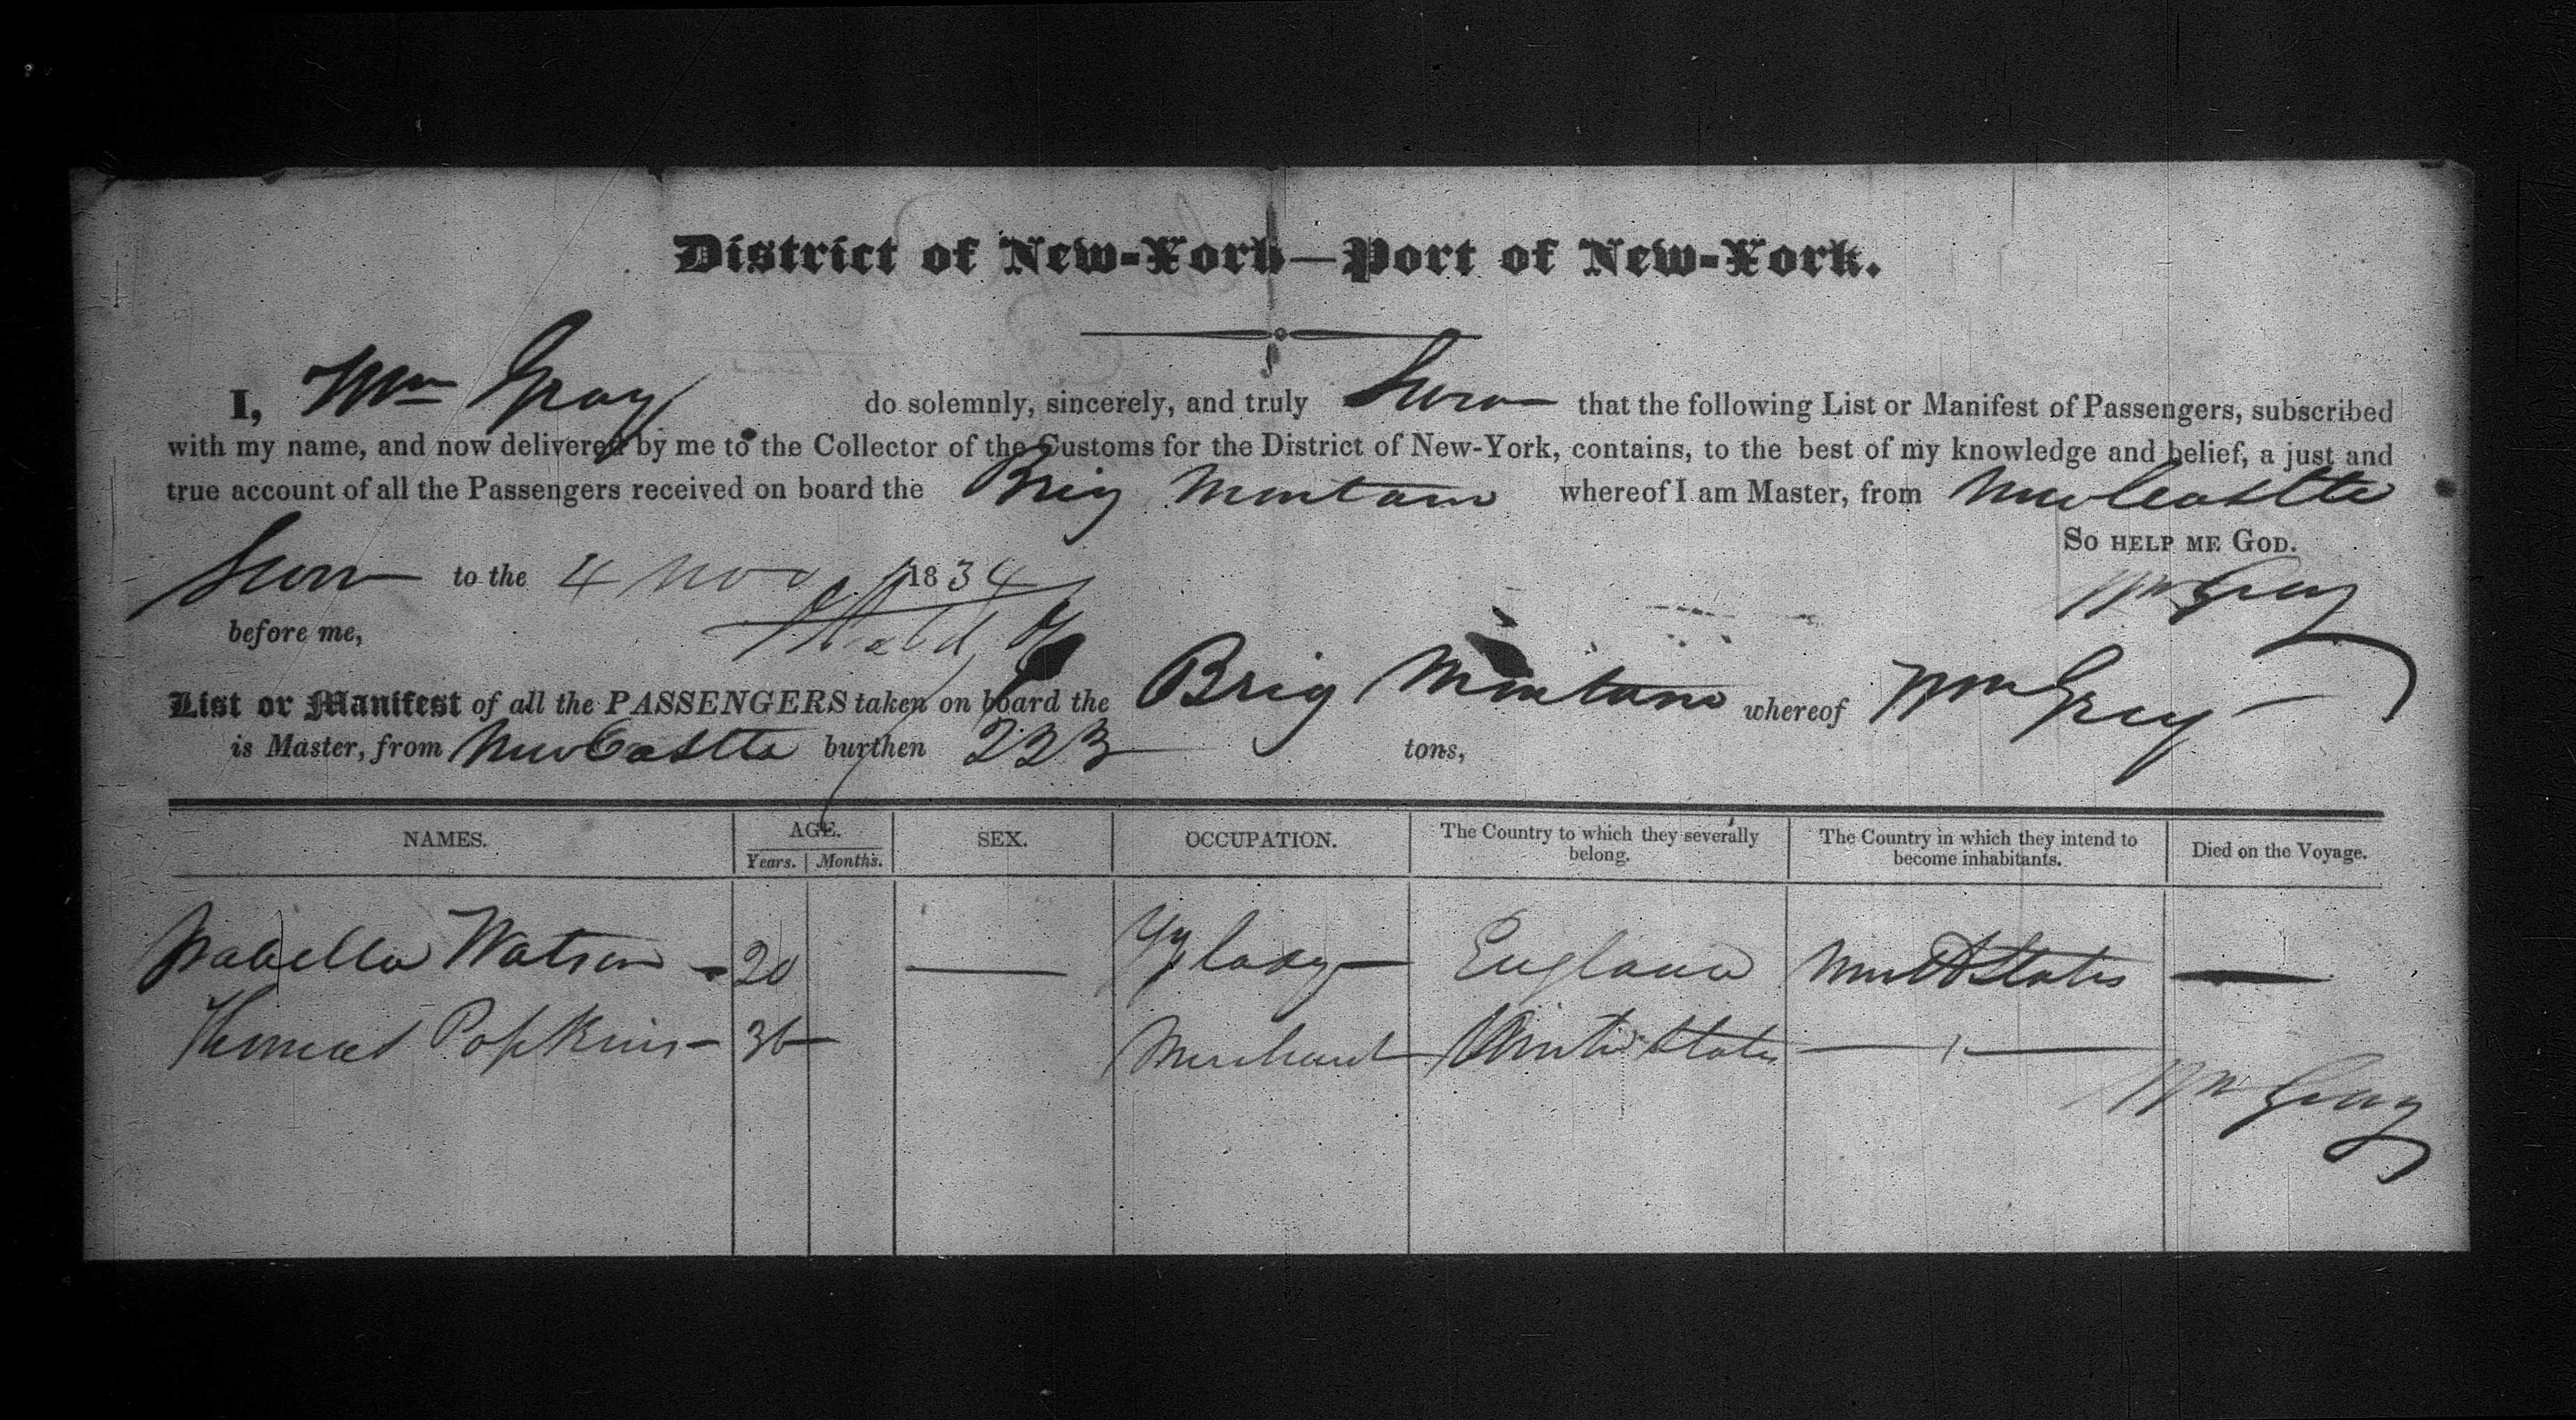 District of New-York—Port of New-York.
I, Wm Gray do solemnly, sincerely, and truly Swear that the following List or Manifest of Passengers, subscribed
with my name, and now delivered by me to the Collector of the Customs for the District of New-York, contains, to the best of my knowledge and belief, a just and
true account of all the Passengers received on board the Brig Montano whereof I am Master, from NewCastle
So help me God.
Sworn to the 4 Nov 1834
Wm Gray
before me,
List or Manifest of all the PASSENGERS taken on board the Brig Montano whereof Wm Gray
is Master, from NewCastle burthen 223 tons,
NAMES. AGE. Years. Months. SEX. OCCUPATION. The Country to which they severally belong. The Country in which they intend to become inhabitants. Died on the Voyage.
Isabella Watson - 20 — Yg lady — England United States —
Thomas Popkins - 36 — Merchant United States — " —
Wm Gray